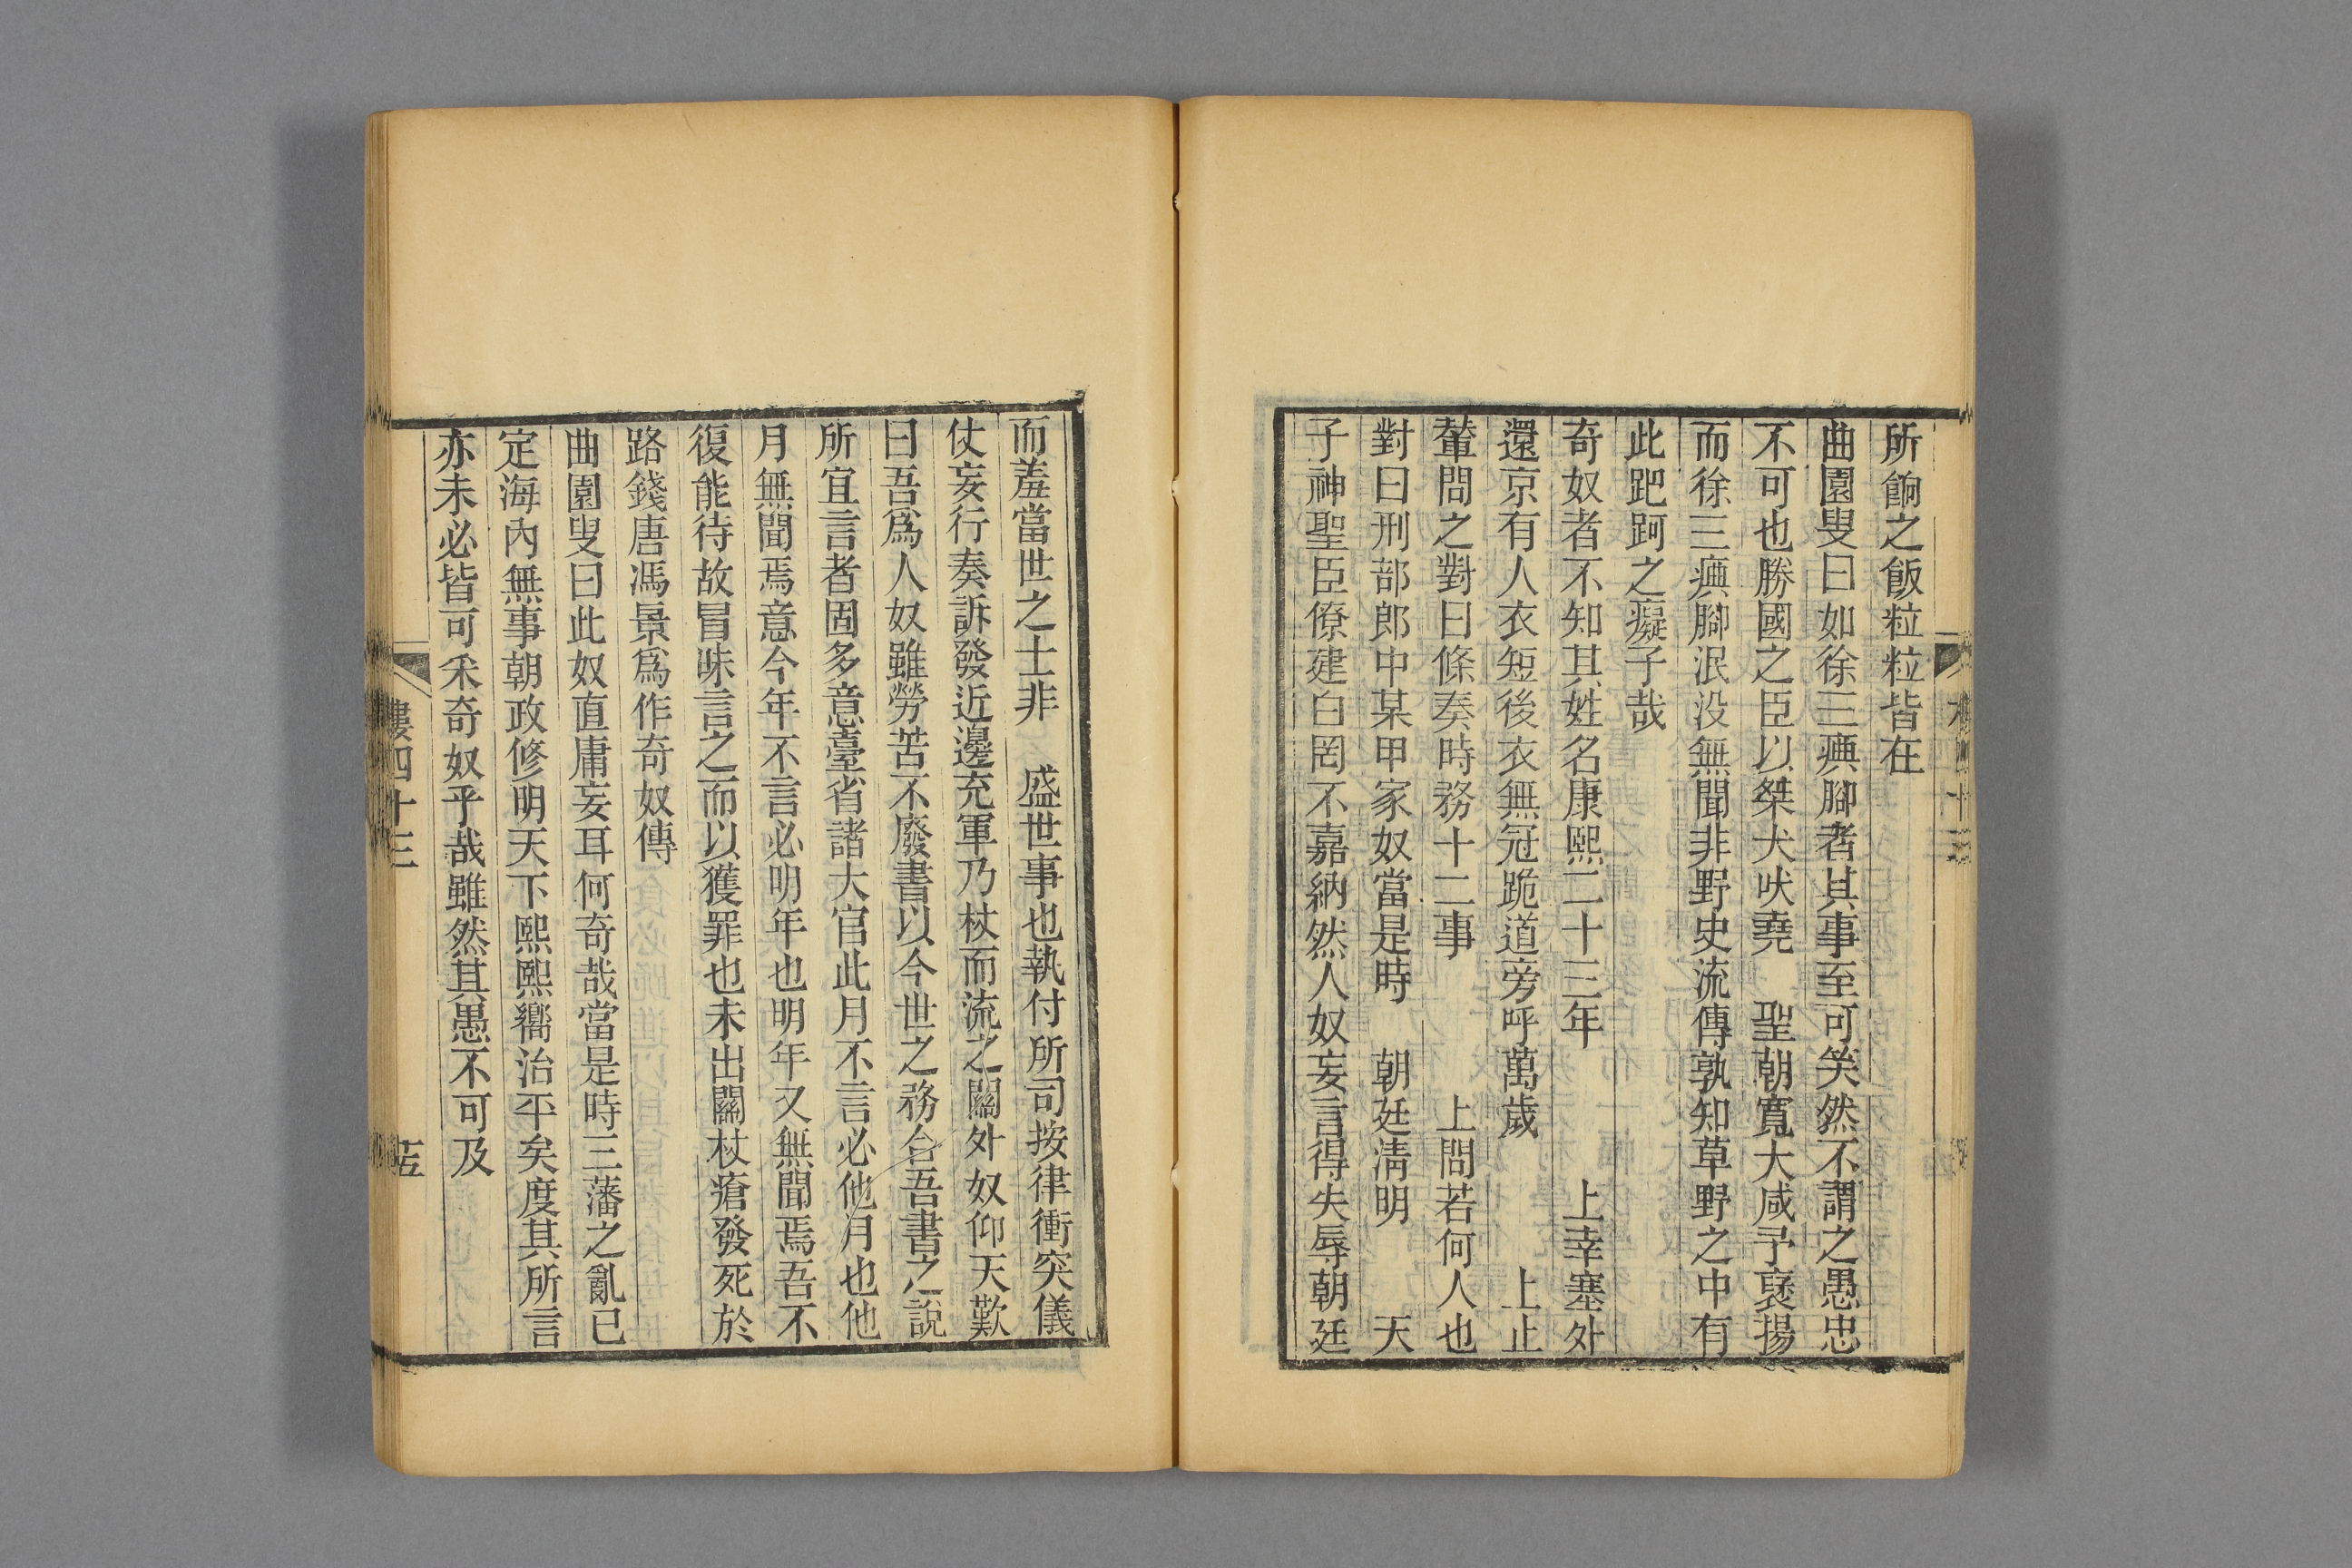 所餉之飯粒粒皆在
曲園叟曰如徐三瘈腳者其事至可笑然不謂之愚忠
不可也勝國之臣以桀犬吠堯　聖朝寬大咸予襃揚
而徐三瘈腳泯没無聞非野史流傳孰知草野之中有
此跁跒之癡子哉
奇奴者不知其姓名康熙二十三年　上幸塞外
還京有人衣短後衣無冠跪道旁呼萬歲　上止
輦問之對曰條奏時務十二事　上問若何人也
對曰刑部郎中某甲家奴當是時　朝廷淸明　天
子神聖臣僚建白罔不嘉納然人奴妄言得失辱朝廷
而羞當世之士非　盛世事也執付所司按律衝突儀
仗妄行奏訴發近邊充軍乃杖而流之關外奴仰天歎
曰吾爲人奴雖勞苦不廢書以今世之務合吾書之說
所宜言者固多意臺省諸大官此月不言必他月也他
月無聞焉意今年不言必明年也明年又無聞焉吾不
復能待故冒昧言之而以獲罪也未出關杖瘡發死於
路錢唐馮景爲作奇奴傳
曲園叟曰此奴直庸妄耳何奇哉當是時三藩之亂已
定海內無事朝政修明天下熙熙嚮治平矣度其所言
亦未必皆可采奇奴乎哉雖然其愚不可及
四十三